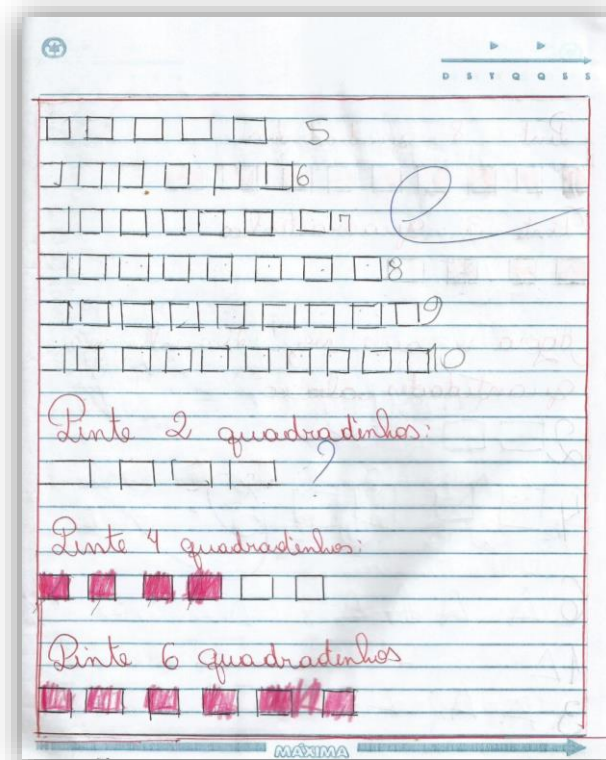 D S T Q Q S S
5
6
7
8
9
10
Pinte 2 quadradinhos:
?
Pinte 4 quadradinhos:
Pinte 6 quadradinhos
MÁXIMA